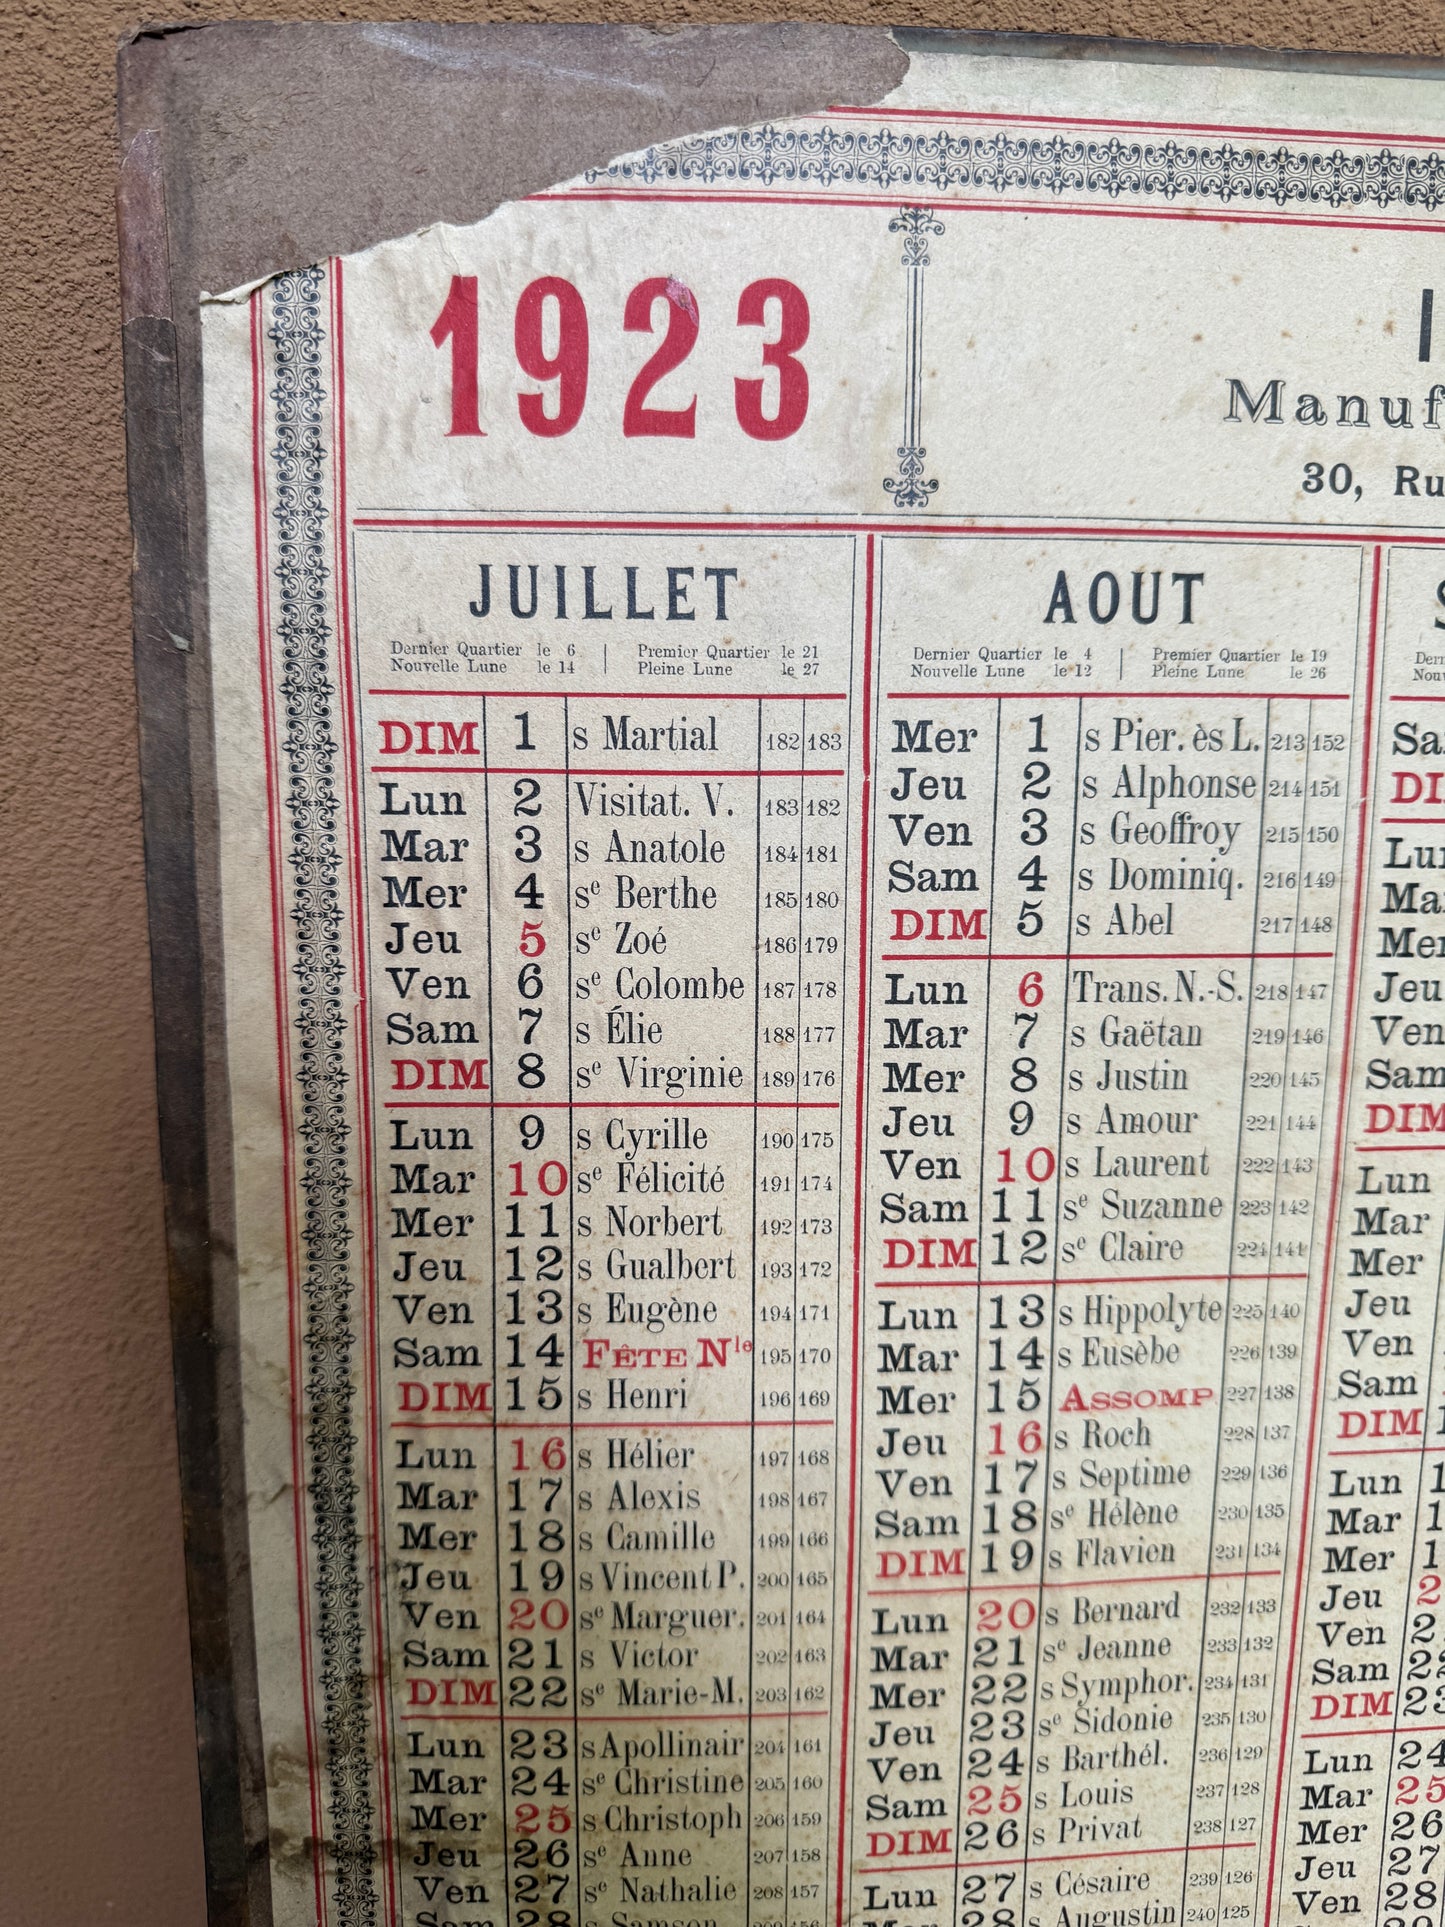 1923
Manuf
30, Ru
JUILLET
Dernier Quartier le 6 | Premier Quartier le 21
Nouvelle Lune le 14 | Pleine Lune le 27
DIM 1 s Martial 182 183
Lun 2 Visitat. V. 183 182
Mar 3 s Anatole 184 181
Mer 4 sᵉ Berthe 185 180
Jeu 5 sᵉ Zoé 186 179
Ven 6 sᵉ Colombe 187 178
Sam 7 s Élie 188 177
DIM 8 sᵉ Virginie 189 176
Lun 9 s Cyrille 190 175
Mar 10 sᵉ Félicité 191 174
Mer 11 s Norbert 192 173
Jeu 12 s Gualbert 193 172
Ven 13 s Eugène 194 171
Sam 14 FÊTE Nˡᵉ 195 170
DIM 15 s Henri 196 169
Lun 16 s Hélier 197 168
Mar 17 s Alexis 198 167
Mer 18 s Camille 199 166
Jeu 19 s Vincent P. 200 165
Ven 20 sᵉ Marguer. 201 164
Sam 21 s Victor 202 163
DIM 22 sᵉ Marie-M. 203 162
Lun 23 s Apollinair 204 161
Mar 24 sᵉ Christine 205 160
Mer 25 s Christoph 206 159
Jeu 26 sᵉ Anne 207 158
Ven 27 sᵉ Nathalie 208 157
Sam 28 s Samson 209 156
AOUT
Dernier Quartier le 4 | Premier Quartier le 19
Nouvelle Lune le 12 | Pleine Lune le 26
Mer 1 s Pier. ès L. 213 152
Jeu 2 s Alphonse 214 151
Ven 3 s Geoffroy 215 150
Sam 4 s Dominiq. 216 149
DIM 5 s Abel 217 148
Lun 6 Trans. N.-S. 218 147
Mar 7 s Gaëtan 219 146
Mer 8 s Justin 220 145
Jeu 9 s Amour 221 144
Ven 10 s Laurent 222 143
Sam 11 sᵉ Suzanne 223 142
DIM 12 sᵉ Claire 224 141
Lun 13 s Hippolyte 225 140
Mar 14 s Eusèbe 226 139
Mer 15 ASSOMP 227 138
Jeu 16 s Roch 228 137
Ven 17 s Septime 229 136
Sam 18 sᵉ Hélène 230 135
DIM 19 s Flavien 231 134
Lun 20 s Bernard 232 133
Mar 21 sᵉ Jeanne 233 132
Mer 22 s Symphor. 234 131
Jeu 23 sᵉ Sidonie 235 130
Ven 24 s Barthél. 236 129
Sam 25 s Louis 237 128
DIM 26 s Privat 238 127
Lun 27 s Césaire 239 126
Mar 28 s Augustin 240 125
Sa
DI
Lu
Ma
Mer
Jeu
Ven
Sam
DIM
Lun
Mar
Mer
Jeu
Ven
Sam
DIM
Lun 1
Mar 1
Mer 1
Jeu 2
Ven 2
Sam 22
DIM 23
Lun 24
Mar 25
Mer 26
Jeu 27
Ven 28